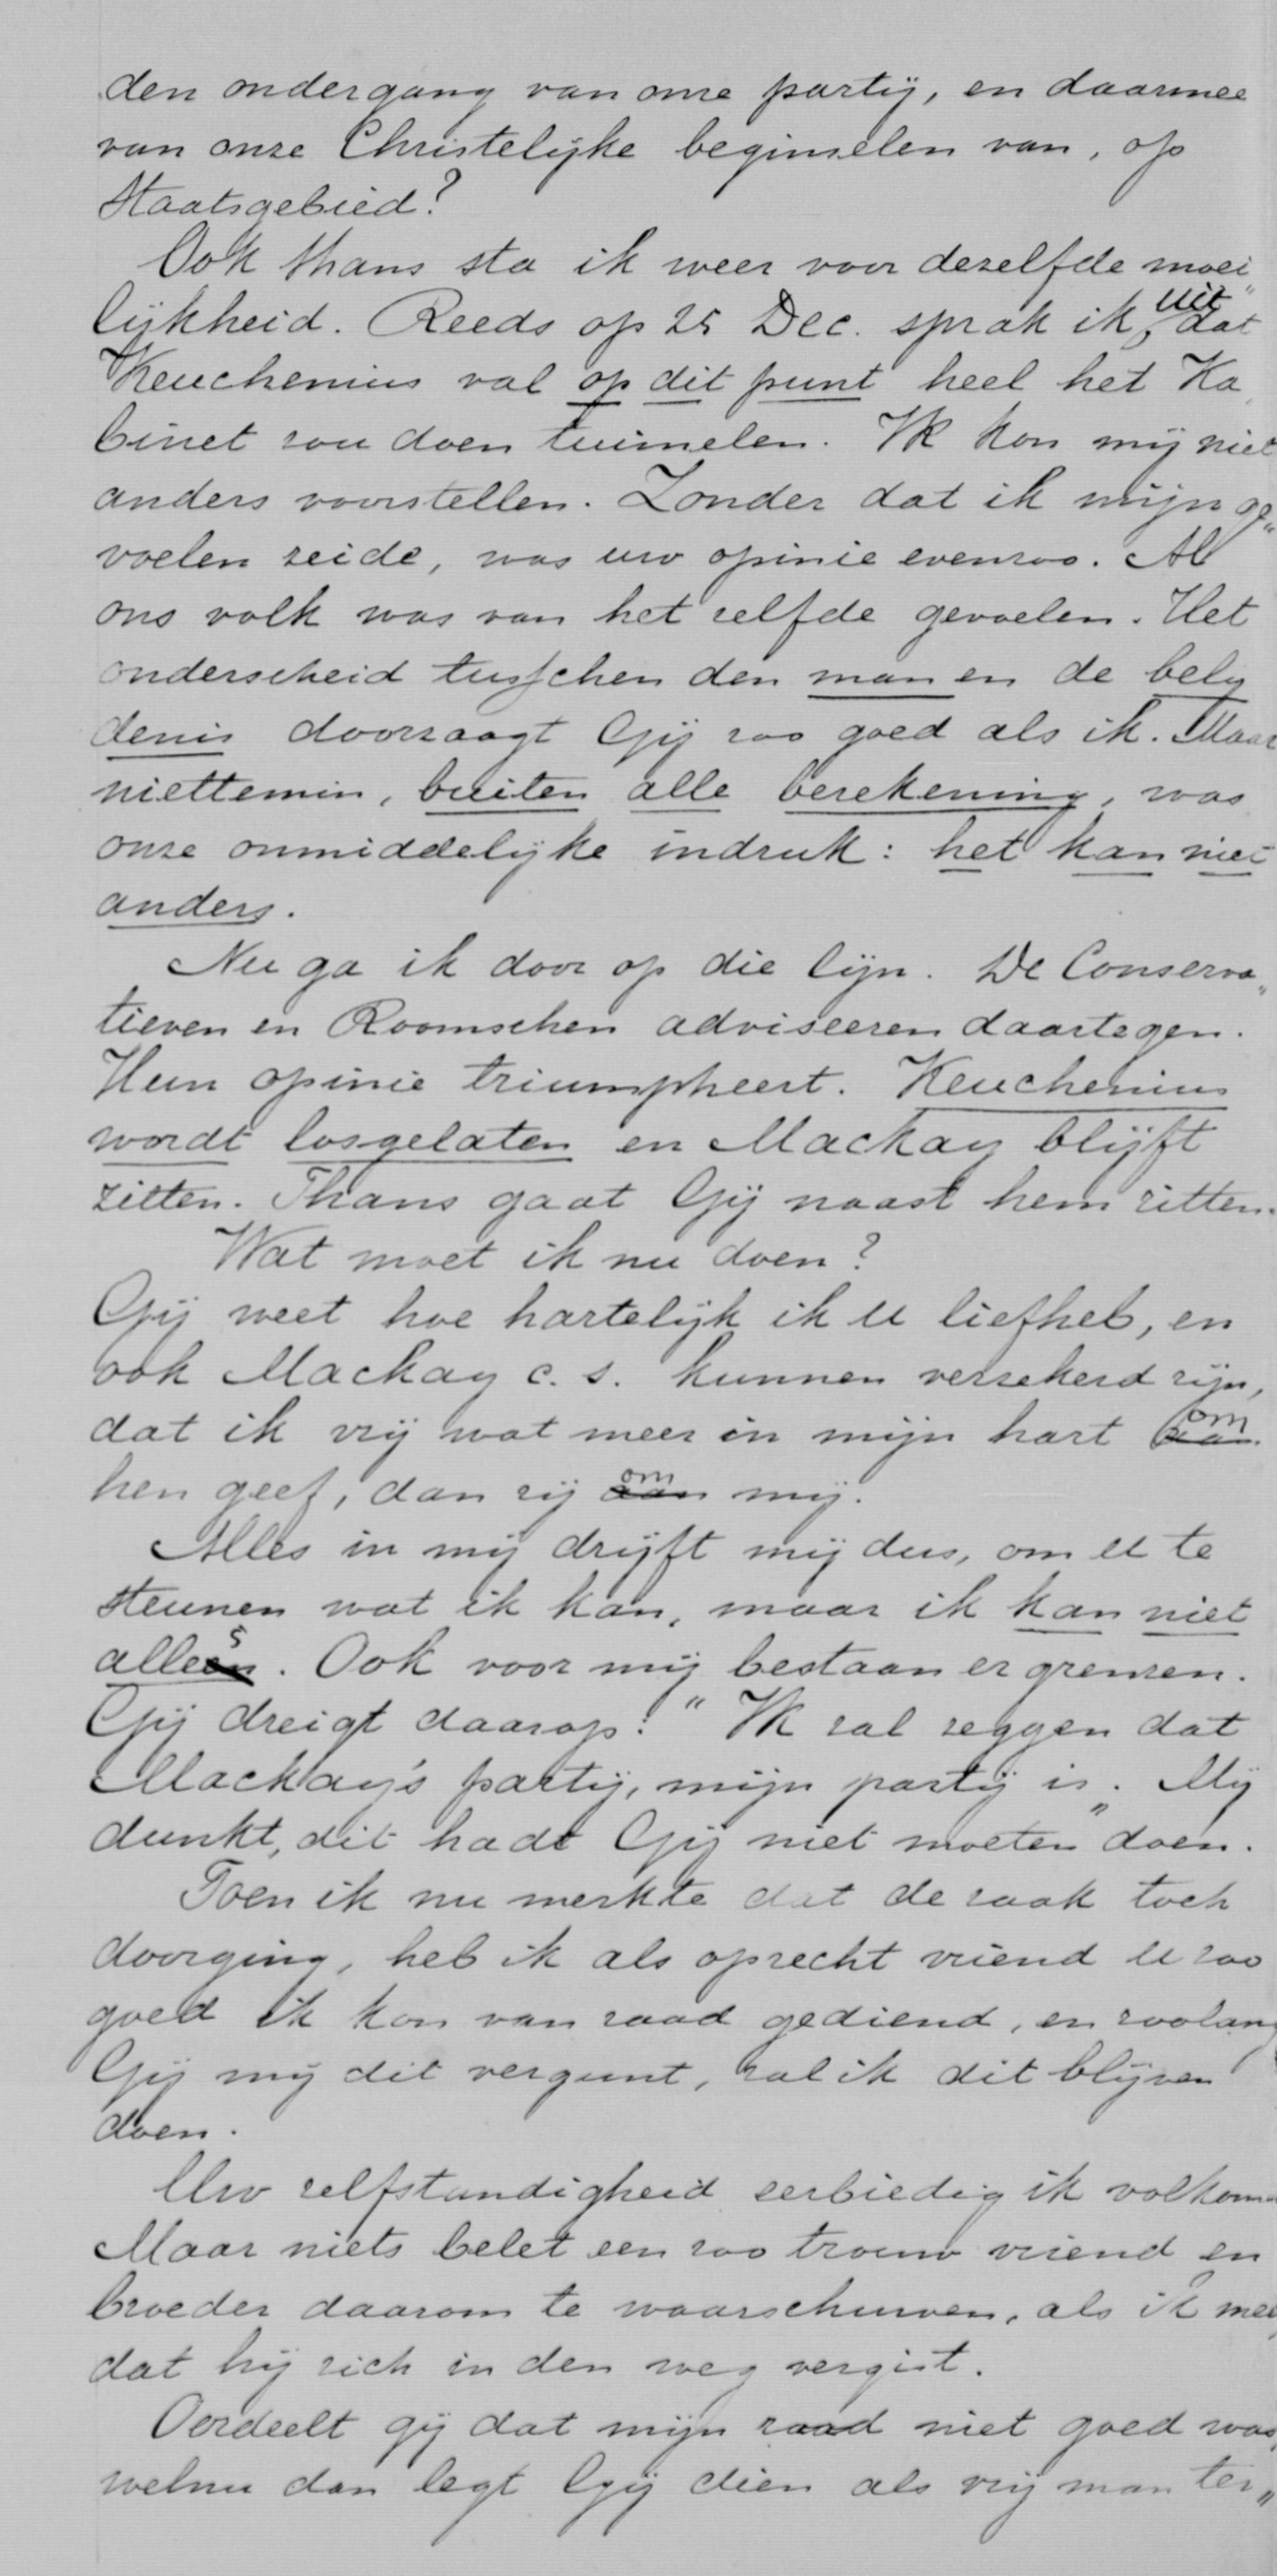 den ondergang van onze partij, en daarmee
van onze Christelijke beginselen van, op
Staatsgebied?
Ook thans sta ik weer voor dezelfde moei„
lijkheid. Reeds op 25 Dec. sprak ik uit, dat
Keuchenius val op dit punt heel het Ka„
binet zou doen tuimelen. Ik kon mij niet
anders voorstellen. Zonder dat ik mijn ge„
voelen zeide, was uw opinie evenzoo. Al
ons volk was van het zelfde gevoelen. Het
onderscheid tusschen den man en de bely
denis doorzaagt Gij zoo goed als ik. Maar
niettemin, buiten alle berekening, was
onze onmiddelijke indruk: het kan niet
anders.
Nu ga ik door op die lijn. De Conserva„
tieven en Roomschen adviseeren daartegen.
Hun opinie triumpheert. Keuchenius
wordt losgelaten en Mackay blijft
zitten. Thans gaat Gij naast hem zitten.
Wat moet ik nu doen?
Gij weet hoe hartelijk ik U liefheb, en
ook Mackay c.s. kunnen verzekerd zijn,
dat ik vrij wat meer in mijn hart aan om
hen geef, dan zij aan om mij.
Alles in mij drijft mij dus, om U te
steunen wat ik kan, maar ik kan niet
alles. Ook voor mij bestaan er grenzen.
Gij dreigt daarop: "Ik zal zeggen dat
Mackay's partij, mijn partij is„. Mij
dunkt, dit hadt Gij niet moeten doen.
Toen ik nu merkte dat de zaak toch
doorging, heb ik als oprecht vriend U zoo
goed ik kon van raad gediend, en zoolang
Gij mij dit vergunt, zal ik dit blijven
doen.
Uw zelfstandigheid eerbiedig ik volkom
Maar niets belet een zoo trouw vriend en
broeder daarom te waarschuwen, als ik mee
dat hij zich in den weg vergist.
Oordeelt gij dat mijn raad niet goed was,
welnu dan legt Gij dien als vrij man ter„